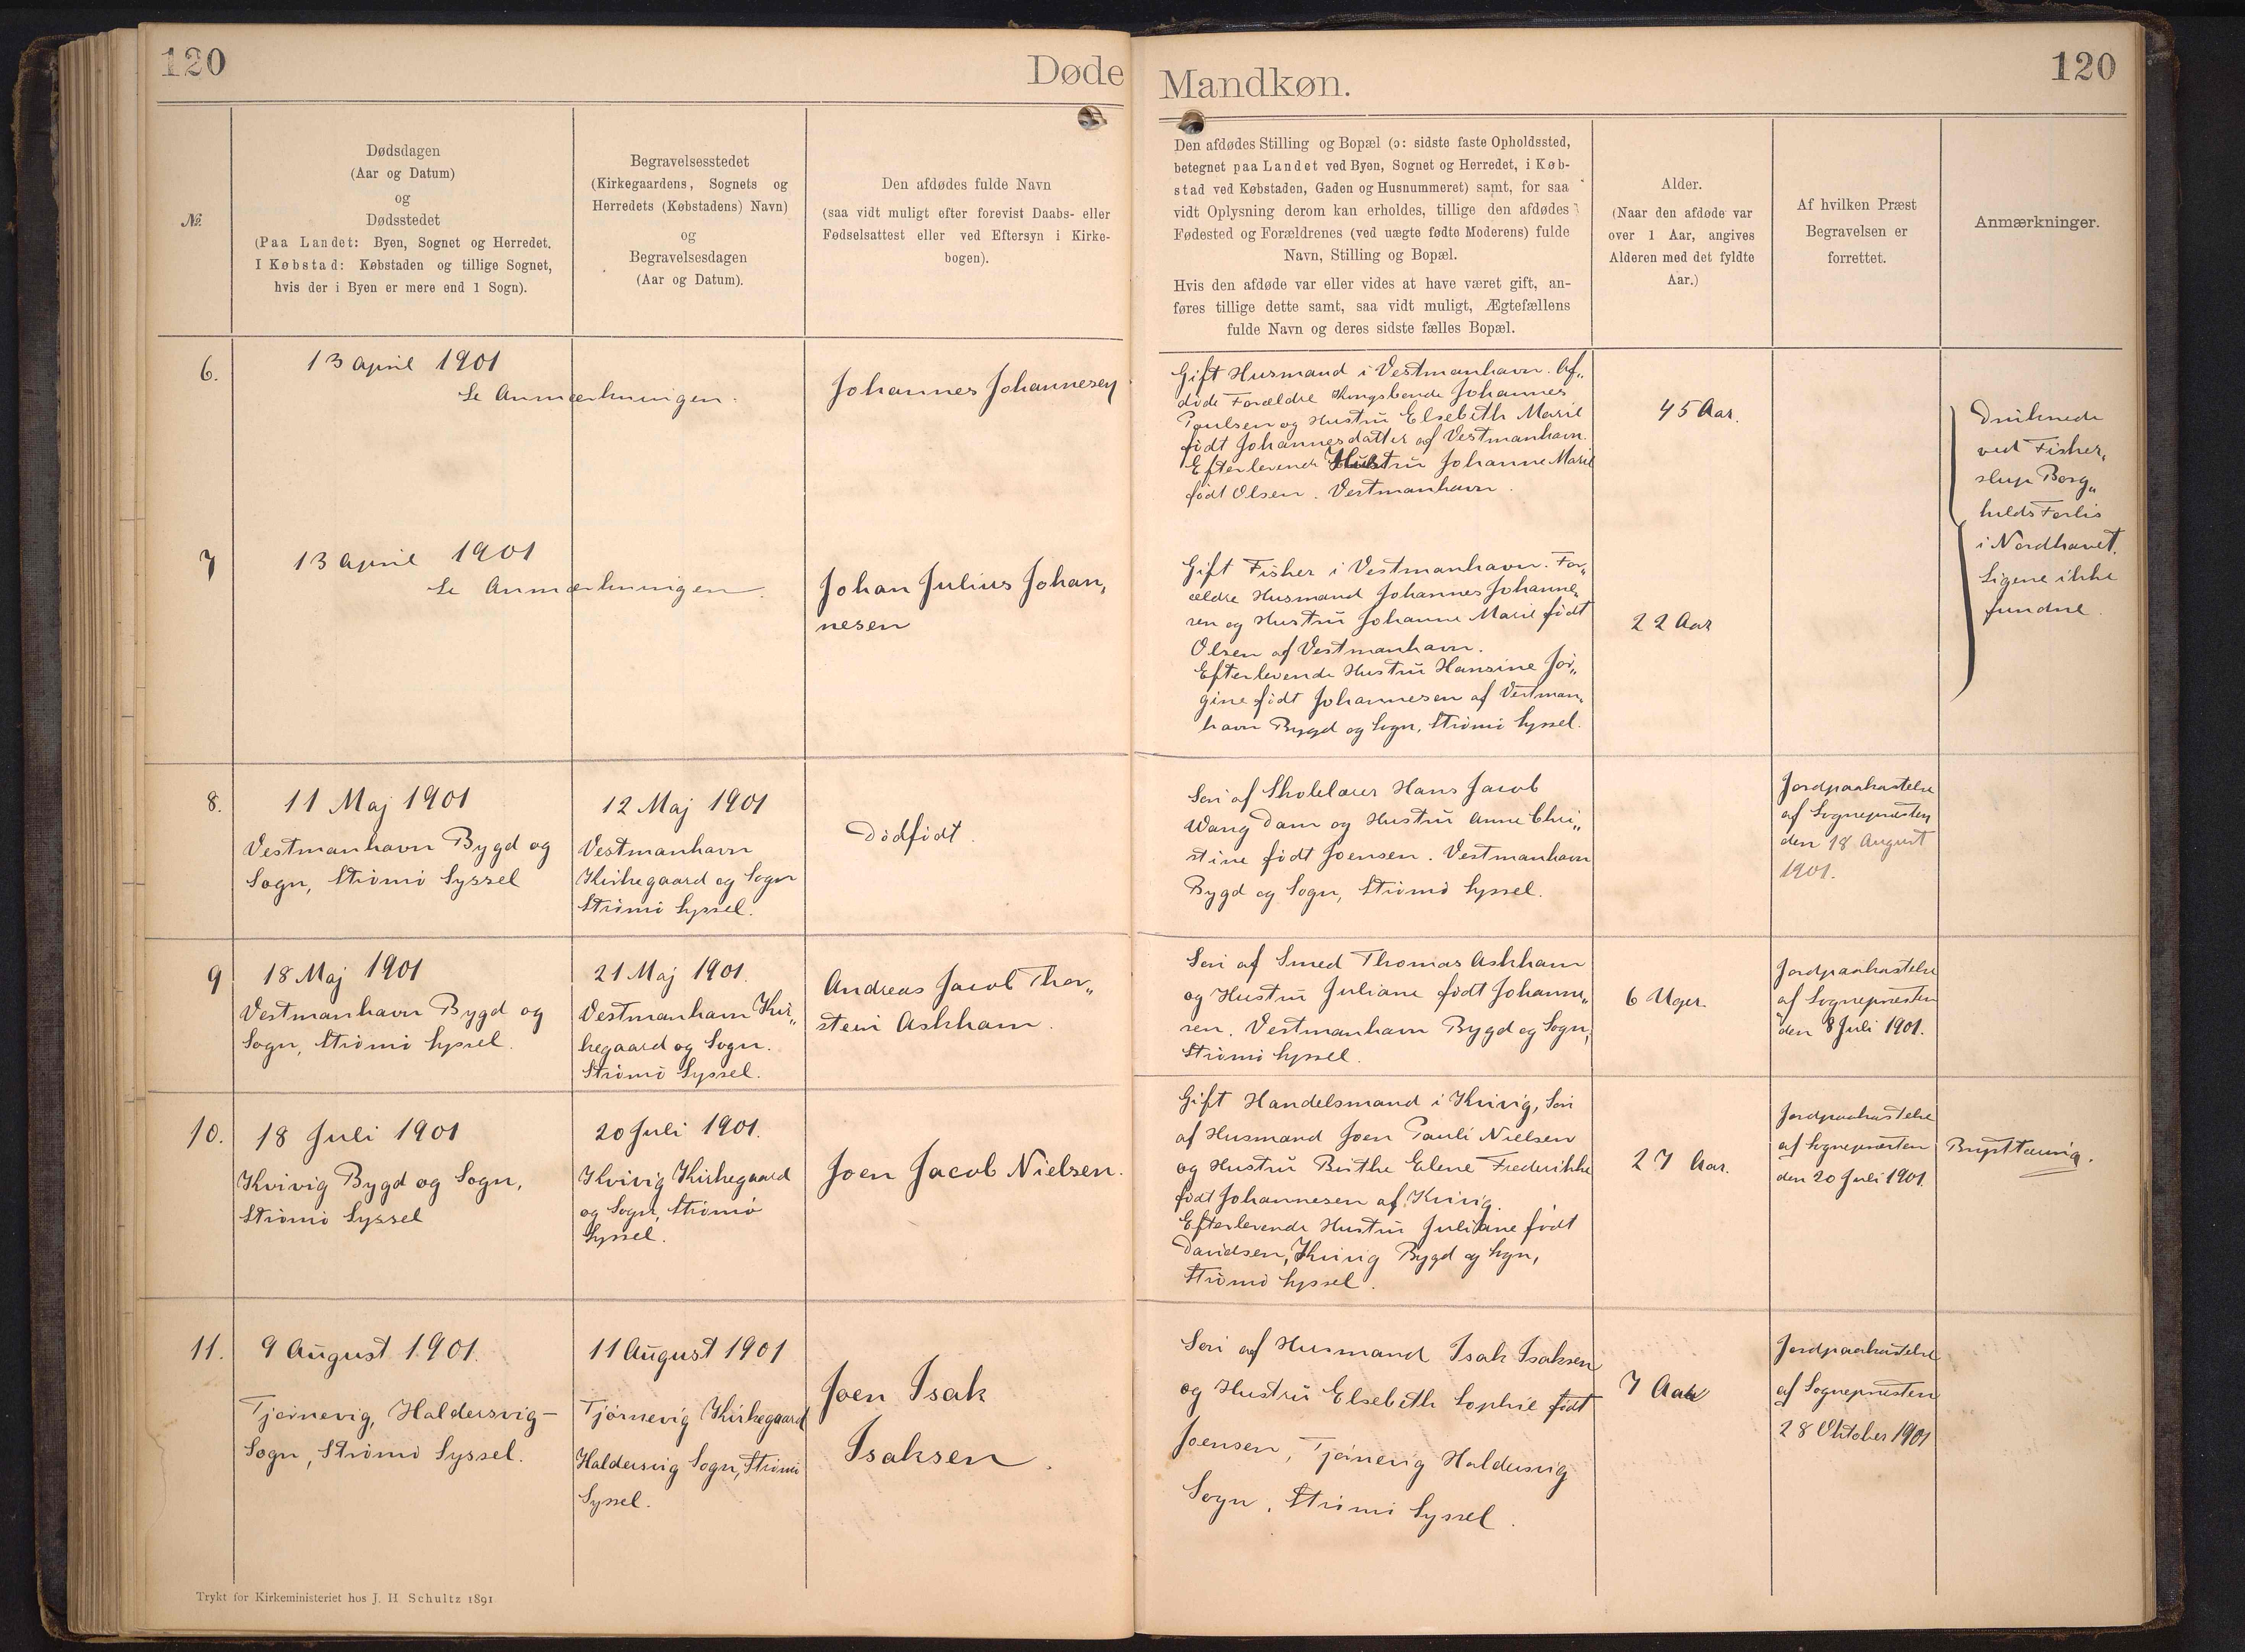 120
Døde
Mandkøn.
120
№
Dødsdagen
(Aar og Datum)
og
Dødsstedet
(Paa Landet: Byen, Sognet og Herredet.
I Købstad: Købstaden og tillige Sognet,
hvis der i Byen er mere end 1 Sogn).
Begravelsesstedet
(Kirkegaardens, Sognets og
Herredets (Købstadens) Navn)
og
Begravelsesdagen
(Aar og Datum).
Den afdødes fulde Navn
(saa vidt muligt efter forevist Daabs- eller
Fødselsattest eller ved Eftersyn i Kirke-
bogen).
Den afdødes Stilling og Bopæl (ɔ: sidste faste Opholdssted,
betegnet paa Landet ved Byen, Sognet og Herredet, i Køb-
stad ved Købstaden, Gaden og Husnummeret) samt, for saa
vidt Oplysning derom kan erholdes, tillige den afdødes
Fødested og Forældrenes (ved uægte fødte Moderens) fulde
Navn, Stilling og Bopæl.
Hvis den afdøde var eller vides at have været gift, an-
føres tillige dette samt, saa vidt muligt, Ægtefællens
fulde Navn og deres sidste fælles Bopæl.
Alder.
(Naar den afdøde var
over 1 Aar, angives
Alderen med det fyldte
Aar.)
Af hvilken Præst
Begravelsen er
forrettet.
Anmærkninger.
6.
13 April 1901
Se Anmærkningen.
Johannes Johannesen
Gift Husmand i Vestmanhavn. Af„
døde Forældre Kongsbonde Johannes
Poulsen og Hustru Elsebeth Marie
født Johannesdatter af Vestmanhavn.
Efterlevende Hustru Johanne Marie
født Olsen. Vestmanhavn.
45 Aar.
Druknede
ved Fisker„
slup Borg„
hilds Forlis
i Nordhavet.
Ligene ikke
fundne.
7
13 April 1901
Se Anmærkningen.
Johan Julius Johan„
nesen
Gift Fisker i Vestmanhavn. For„
ældre Husmand Johannes Johanne„
sen og Hustru Johanne Marie født
Olsen af Vestmanhavn.
Efterlevende Hustru Hansine Jør„
gine født Johannesen af Vestman„
havn Bygd og Sogn, Strømø Syssel.
22 Aar
8.
11 Maj 1901
Vestmanhavn Bygd og
Sogn, Strømø Syssel
12 Maj 1901
Vestmanhavn
Kirkegaard og Sogn
Strømø Syssel.
Dødfødt.
Søn af Skolelærer Hans Jacob
Wang Dam og Hustru Anne Chri„
stine født Joensen. Vestmanhavn
Bygd og Sogn, Strømø Syssel.
Jordpaakastelse
af Sognepræsten
den 18 August
1901.
9
18 Maj 1901
Vestmanhavn Bygd og
Sogn, Strømø Syssel.
21 Maj 1901.
Vestmanhavn Kir„
kegaard og Sogn.
Strømø Syssel.
Andreas Jacob Thor„
stein Askham.
Søn af Smed Thomas Askham
og Hustru Juliane født Johanne„
sen. Vestmanhavn Bygd og Sogn,
Strømø Syssel.
6 Uger.
Jordpaakastelse
af Sognepræsten
den 8 Juli 1901.
10.
18 Juli 1901
Kvivig Bygd og Sogn,
Strømø Syssel
20 Juli 1901.
Kvivig Kirkegaard
og Sogn, Strømø
Syssel.
Joen Jacob Nielsen.
Gift Handelsmand i Kvivig, Søn
af Husmand Joen Pauli Nielsen
og Hustru Birthe Elene Frederikke
født Johannesen af Kvivig.
Efterlevende Hustru Juliane født
Davidsen, Kvivig Bygd og Sogn,
Strømø Syssel.
27 Aar.
Jordpaakastelse
af Sognepræsten
den 20 Juli 1901.
Brysttæring.
11.
9 August 1901.
Tjørnevig, Haldersvig-
Sogn, Strømø Syssel.
11 August 1901
Tjørnevig Kirkegaard
Haldersvig Sogn, Strømø
Syssel.
Joen Isak
Isaksen.
Søn af Husmand Isak Isaksen
og Hustru Elsebeth Sophie født
Joensen, Tjørnevig Haldersvig
Sogn, Strømø Syssel.
7 Aar
Jordpaakastelse
af Sognepræsten
28 Oktober 1901
Trykt for Kirkeministeriet hos J. H. Schultz 1891